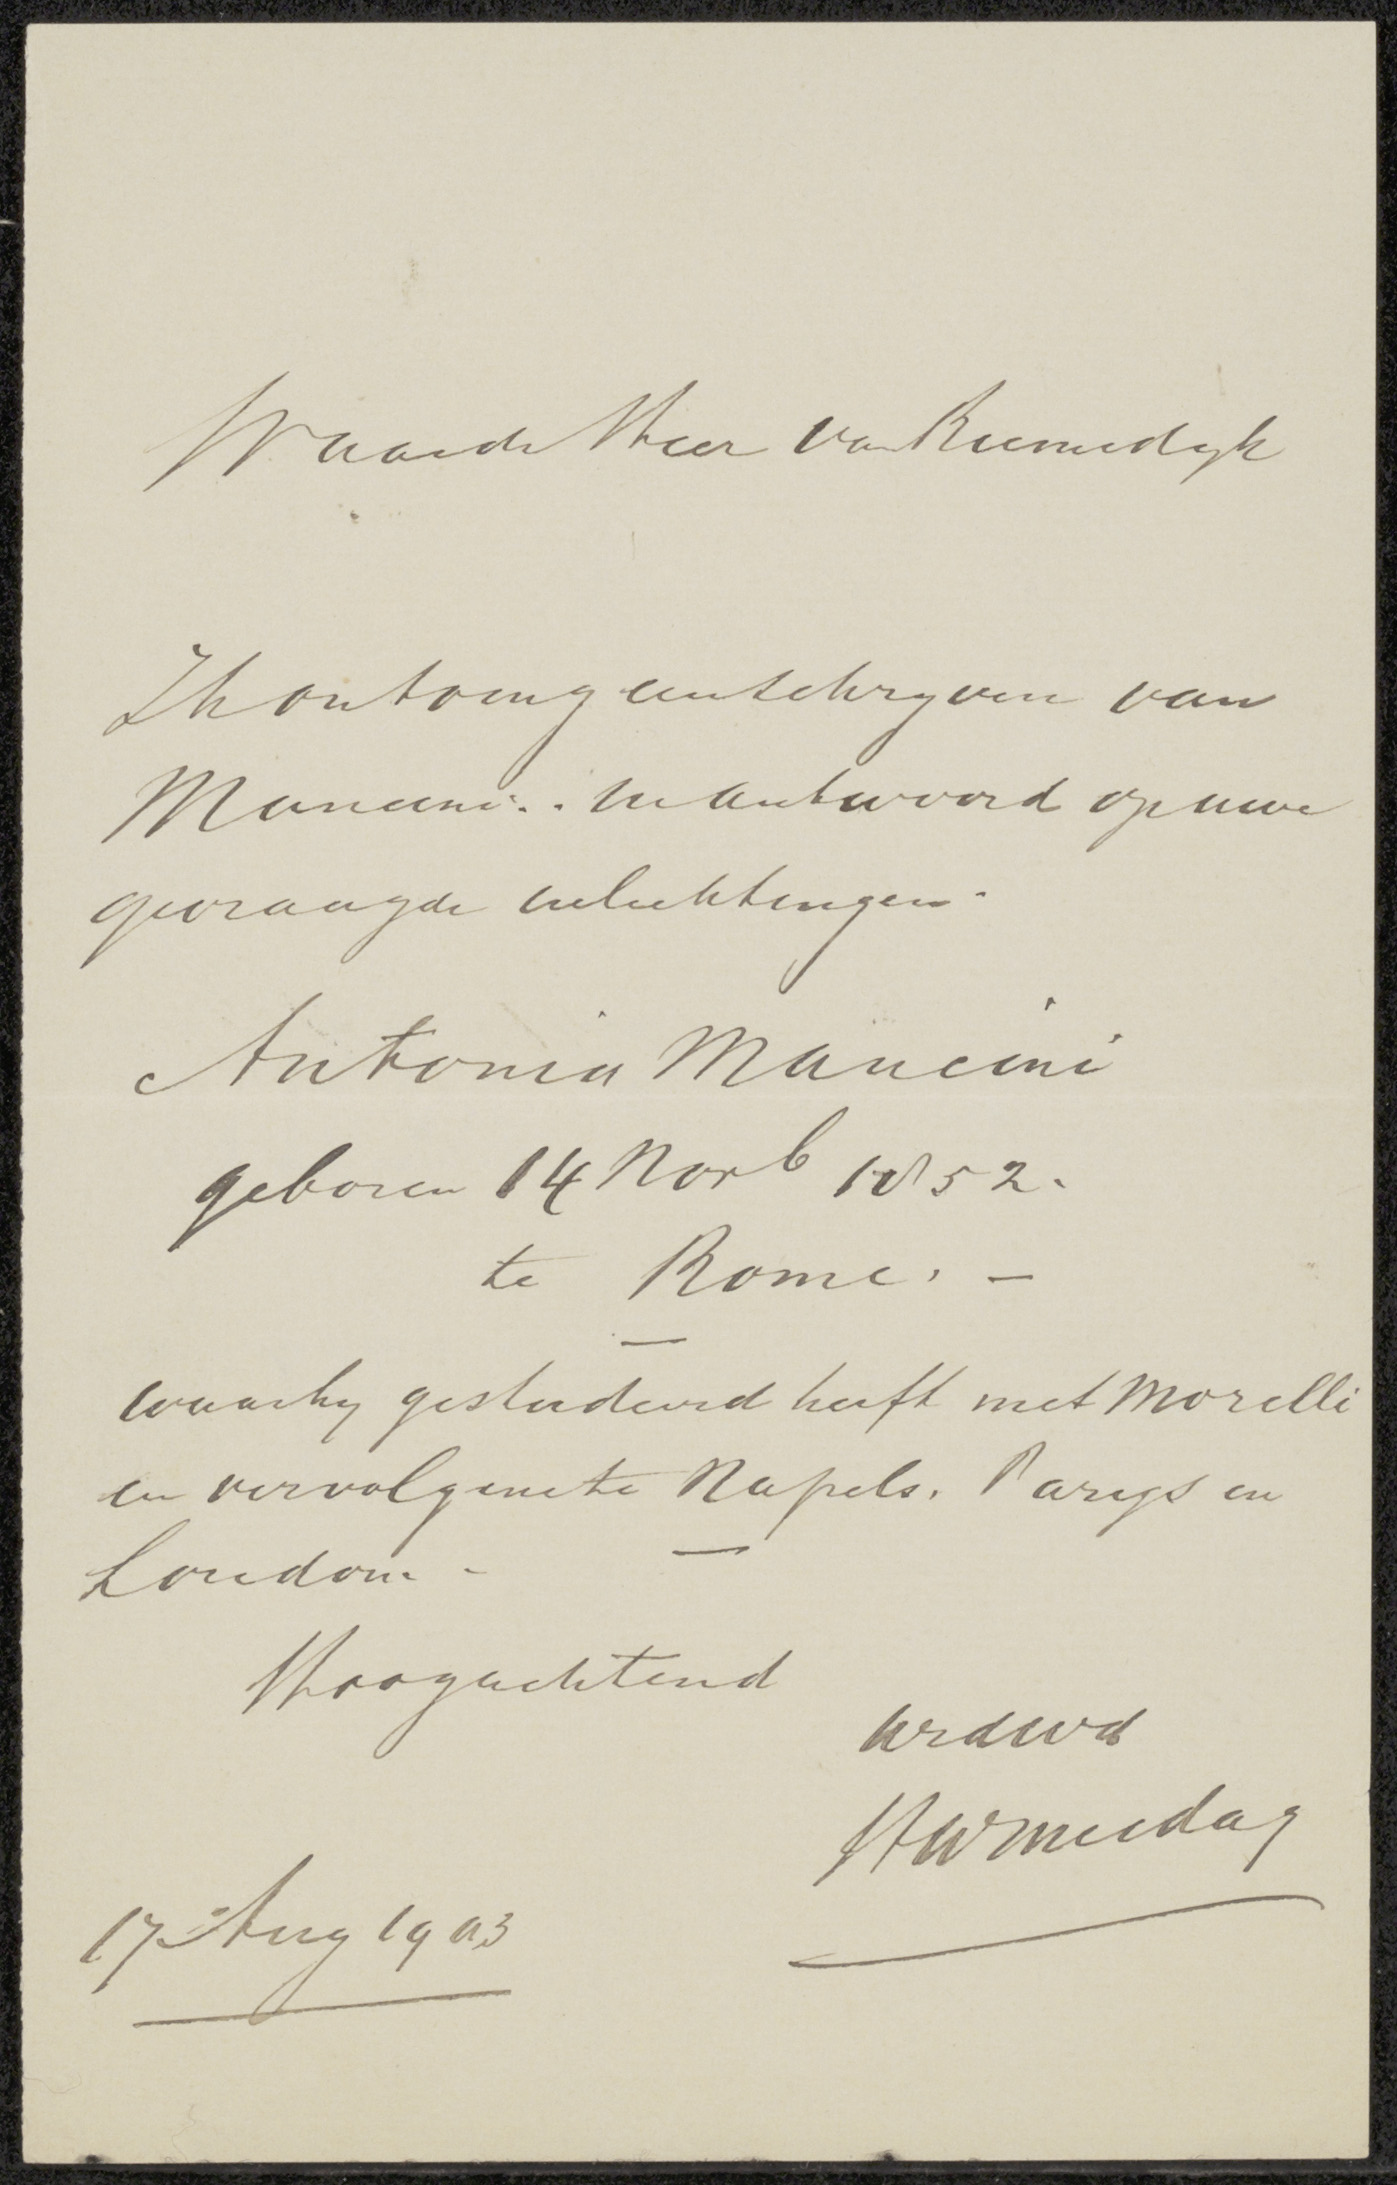 Waarde Heer van Riemsdyk
Ik ontving een schryven van
Mancini. in antwoord op uwe
gevraagde inlichtingen.
Antonio Mancini
geboren 14 Novb 1852.
te Rome. —
—
waar hy gestudeerd heeft met Morelli
en vervolgens te Napels. Parys en
London. —
Hoogachtend
uwdwd
HWMesdag
17 Aug 1903